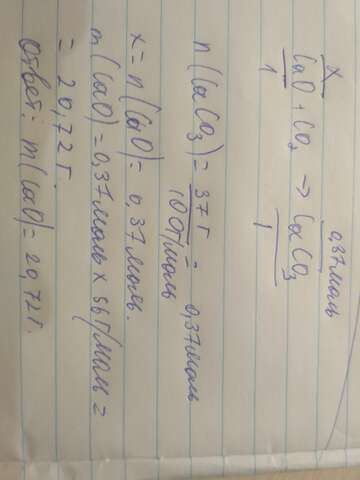 x 0,37моль
CaO + CO₂ → CaCO₃
1 1
n(CaCO₃) = 37г / 100г/моль = 0,37моль
x = n(CaO) = 0,37моль.
m(CaO) = 0,37моль × 56г/моль =
= 20,72г.
Ответ: m(CaO) = 20,72г.